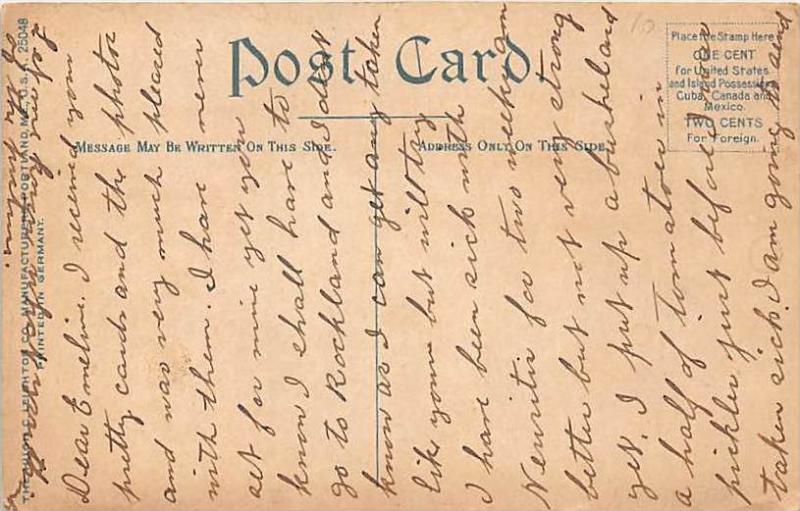 Post Card.
MESSAGE MAY BE WRITTEN ON THIS SIDE.
ADDRESS ONLY ON THIS SIDE
Place the Stamp Here
ONE CENT
for United States
and Island Possessions
Cuba, Canada and
Mexico.
TWO CENTS
For Foreign.
THE HUGH C. LEIGHTON CO., MANUFACTURERS, PORTLAND, ME., U.S.A. 25048
PRINTED IN GERMANY.
Dear Emeline. I received your
pretty cards and the photos
and was very much pleased
with them. I have never
set for mine yet you
know I shall have to
go to Rockland and I dont
know as I can get any taken
like yours but will try
I have been sick with
Neuritis for two weeks am
better but not very strong
yet. I put up a bushel and
a half of tomatoes in
pickles just before I was
taken sick. I am going to send